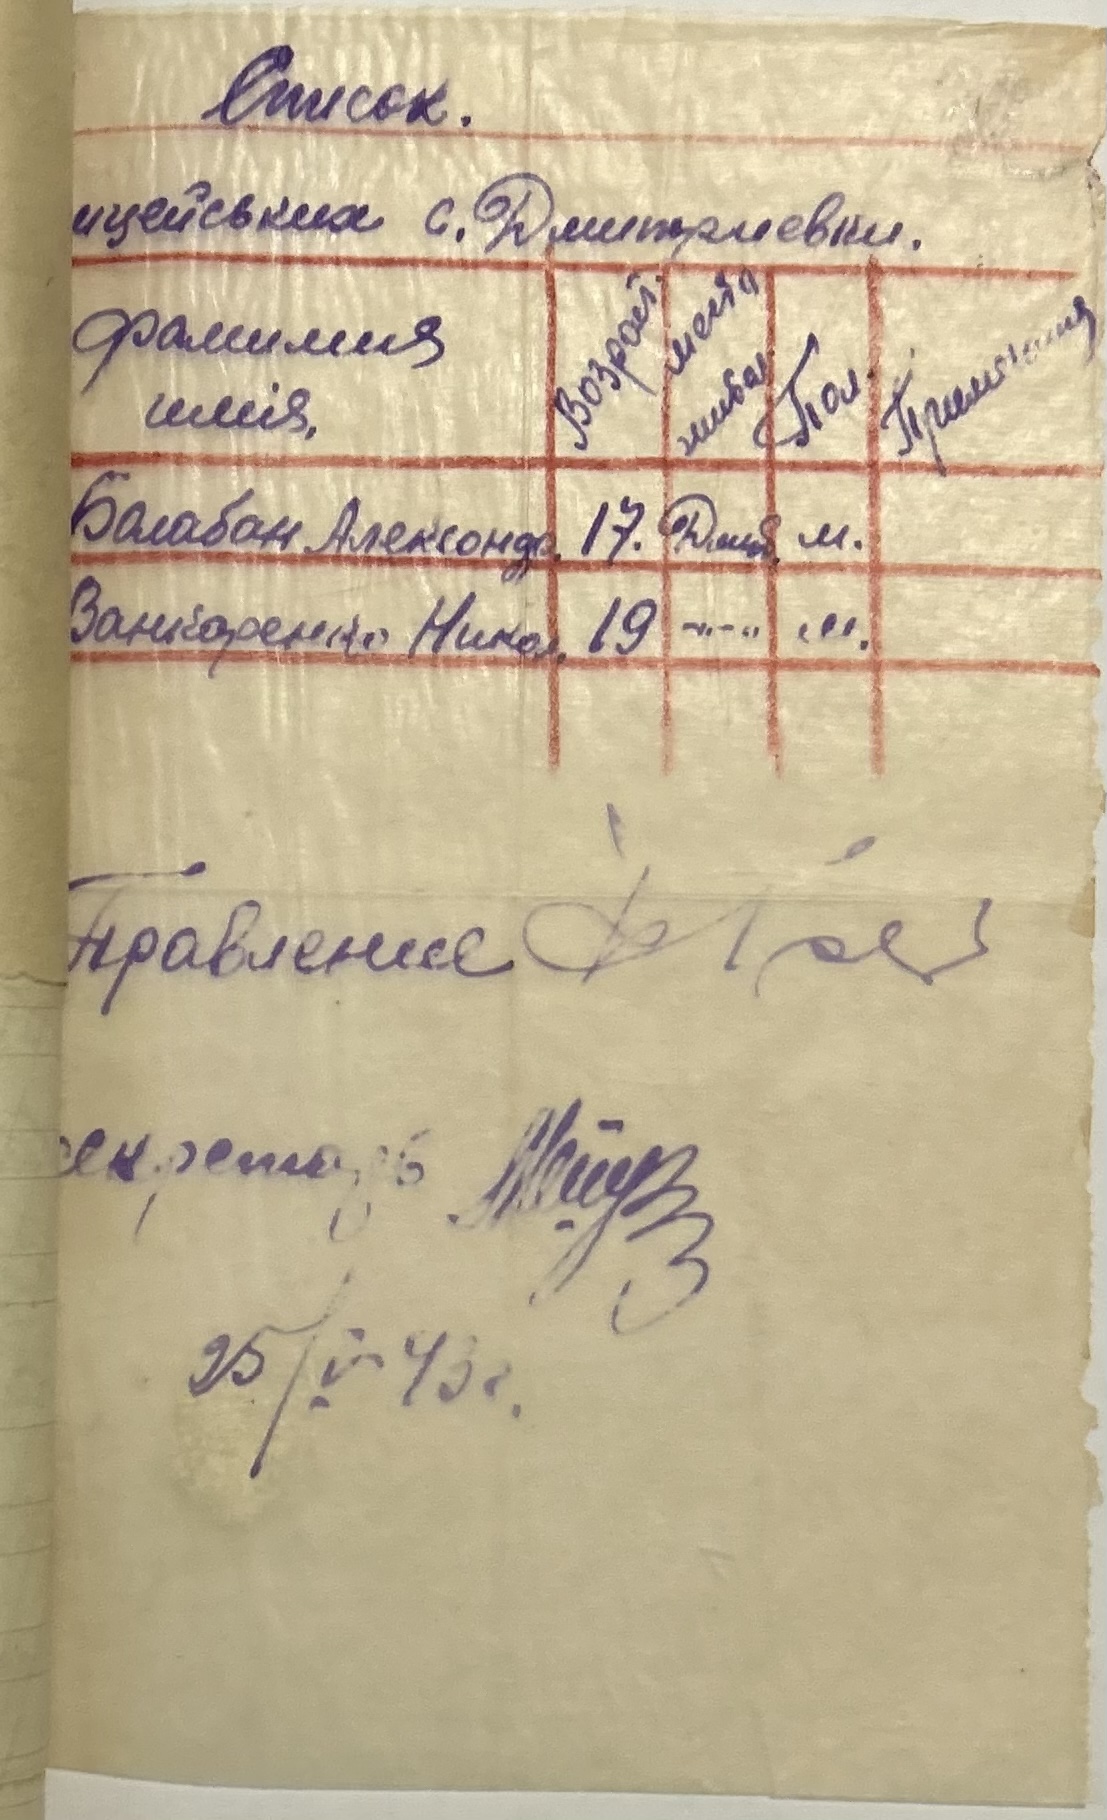 Список.
ицейських с. Дмитриевки.
фамилия имія. Возраст. место жител Пол. Примечания
Балабан Александр. 17. Дмит. м.
Никол. 19 -"-"- м.
Правление
секретарь
25/V-43г.